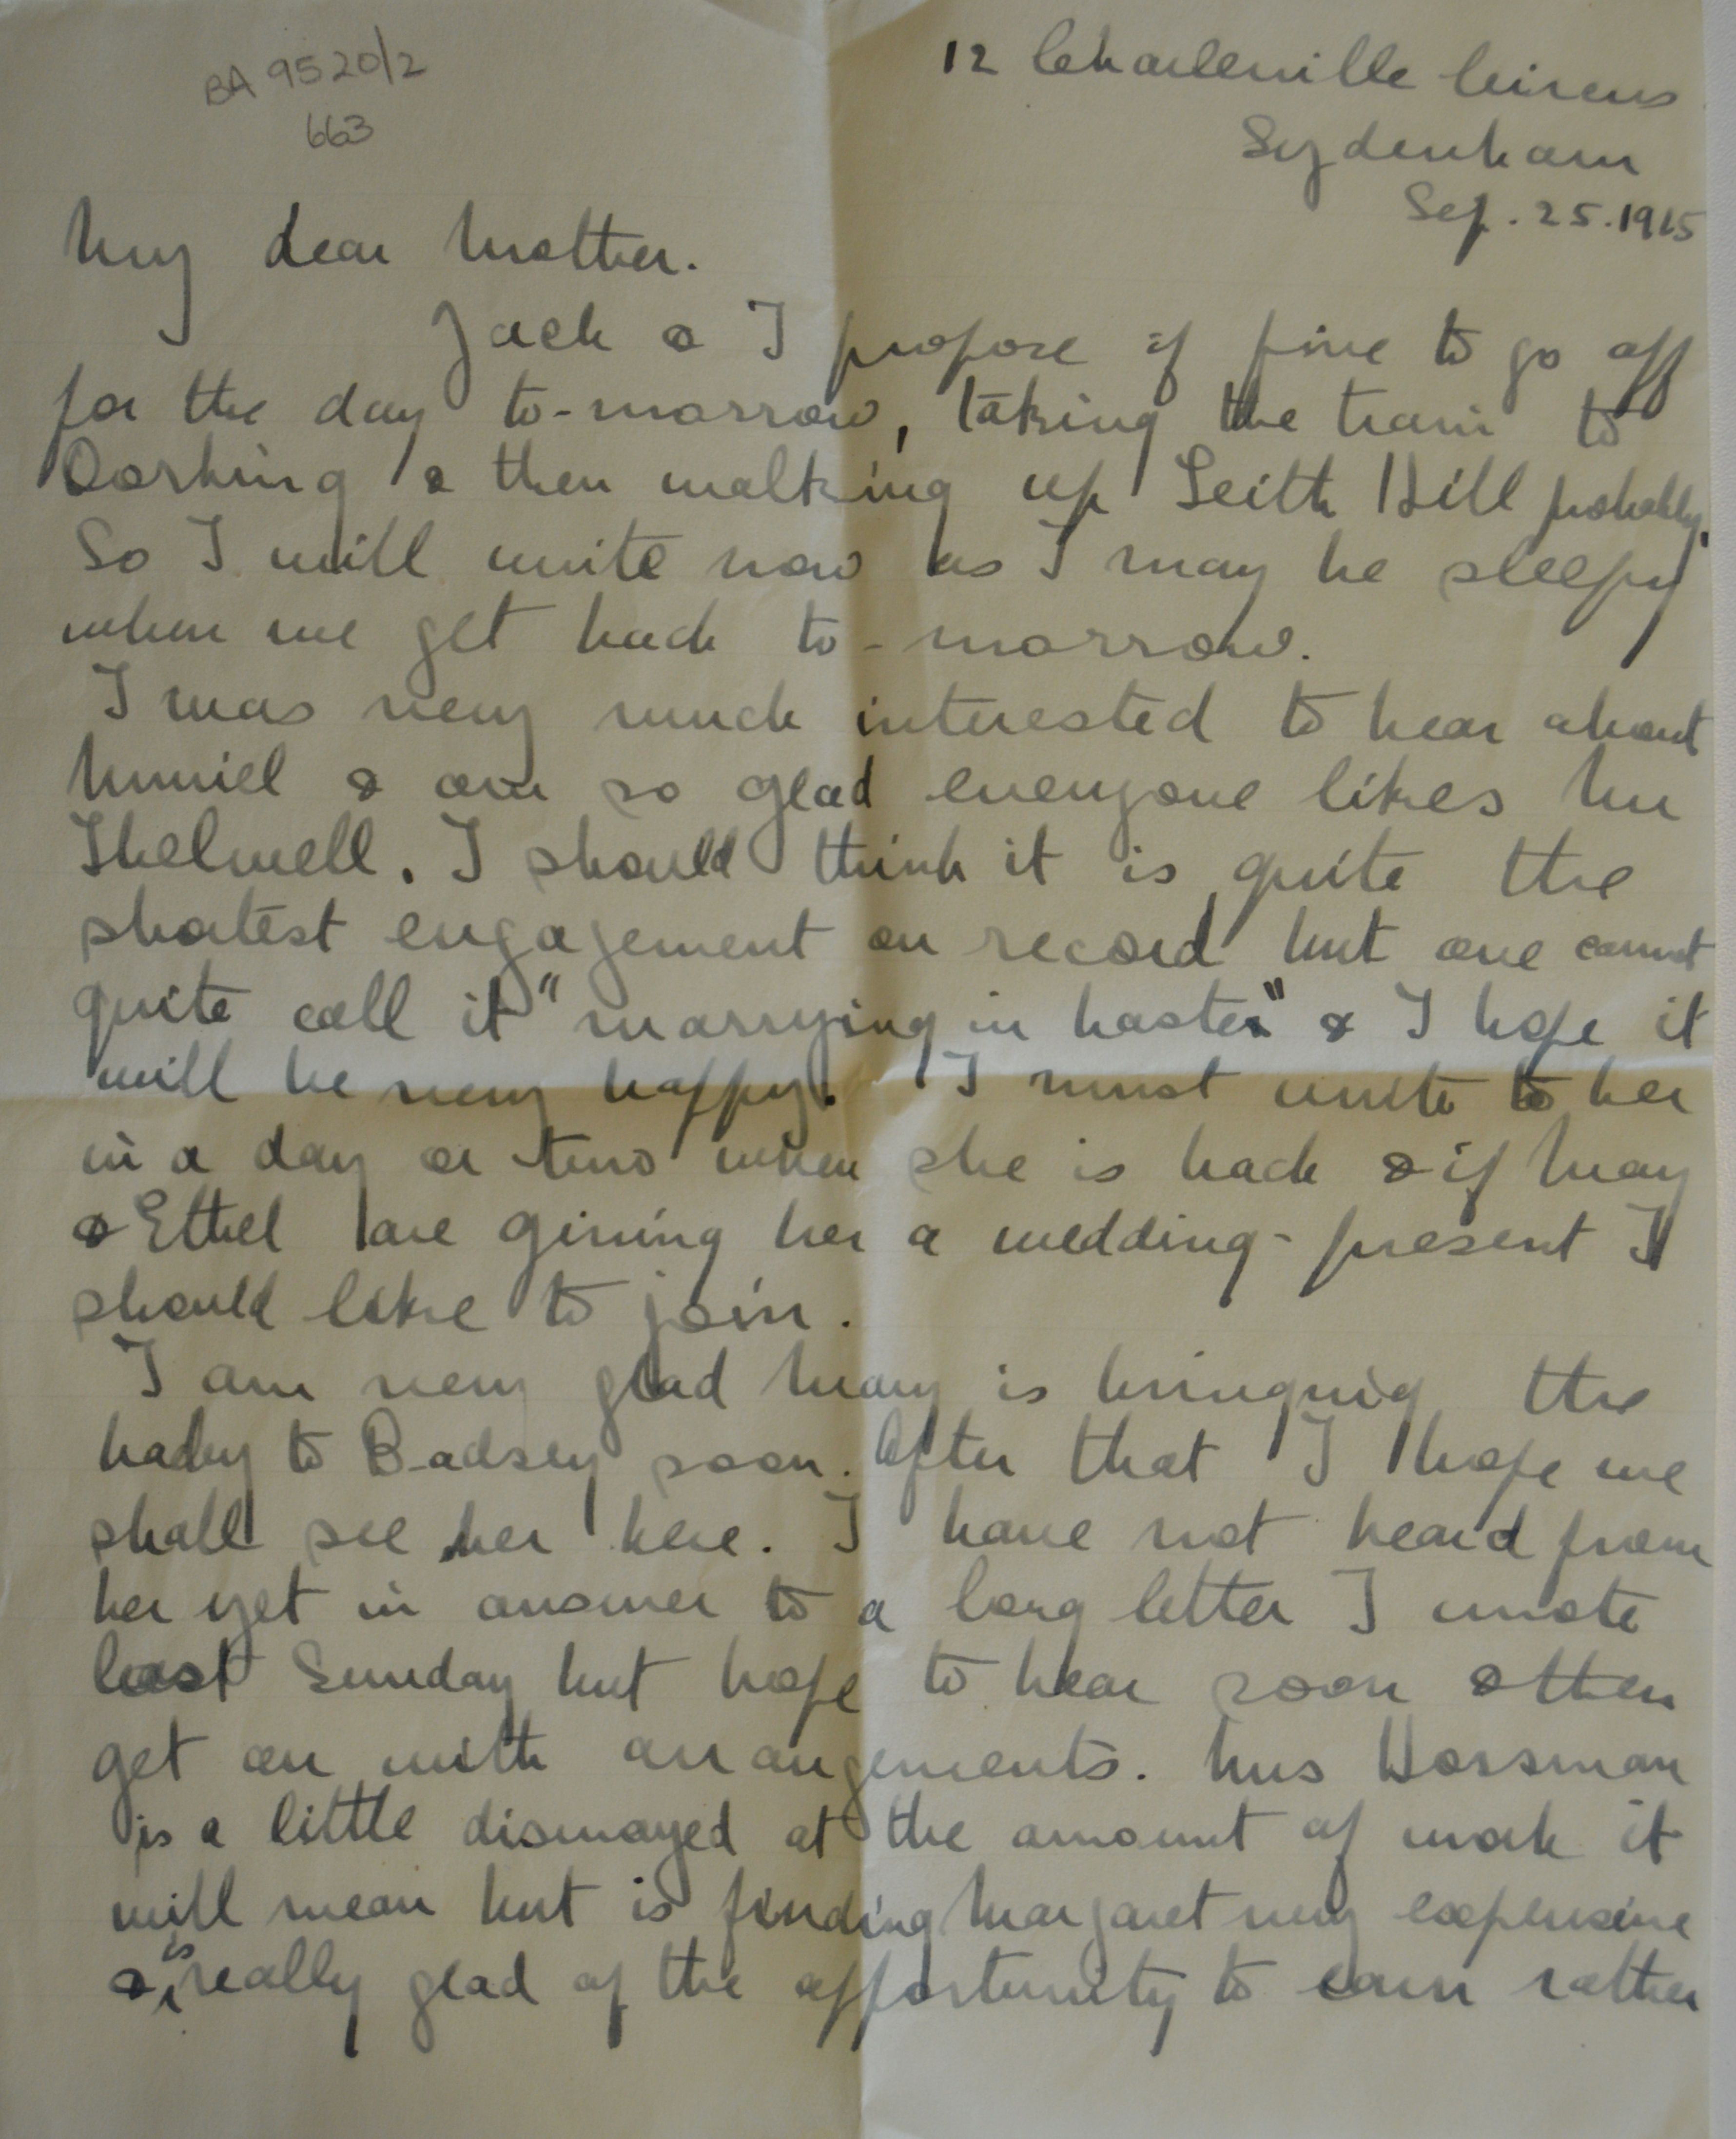 BA 9520/2
663
12 Charleville Circus
Sydenham
Sep. 25. 1915
My dear Mother.
Jack & I propose if fine to go off
for the day to-morrow, taking the train to
Dorking & then walking up Leith Hill probably.
So I will write now as I may be sleepy
when we get back to-morrow.
I was very much interested to hear about
Muriel & am so glad everyone likes Mr
Thelwell. I should think it is quite the
shortest engagement on record but one cannot
quite call it "marrying in haste" & I hope it
will be very happy. I must write to her
in a day or two when she is back & if May
& Ethel are giving her a wedding-present I
should like to join.
I am very glad Mary is bringing the
baby to Badsey soon. After that I hope we
shall see her here. I have not heard from
her yet in answer to a long letter I wrote
last Sunday but hope to hear soon & then
get on with arrangements. Mrs Horsman
is a little dismayed at the amount of work it
will mean but is finding Margaret very expensive
& is really glad of the opportunity to earn rather